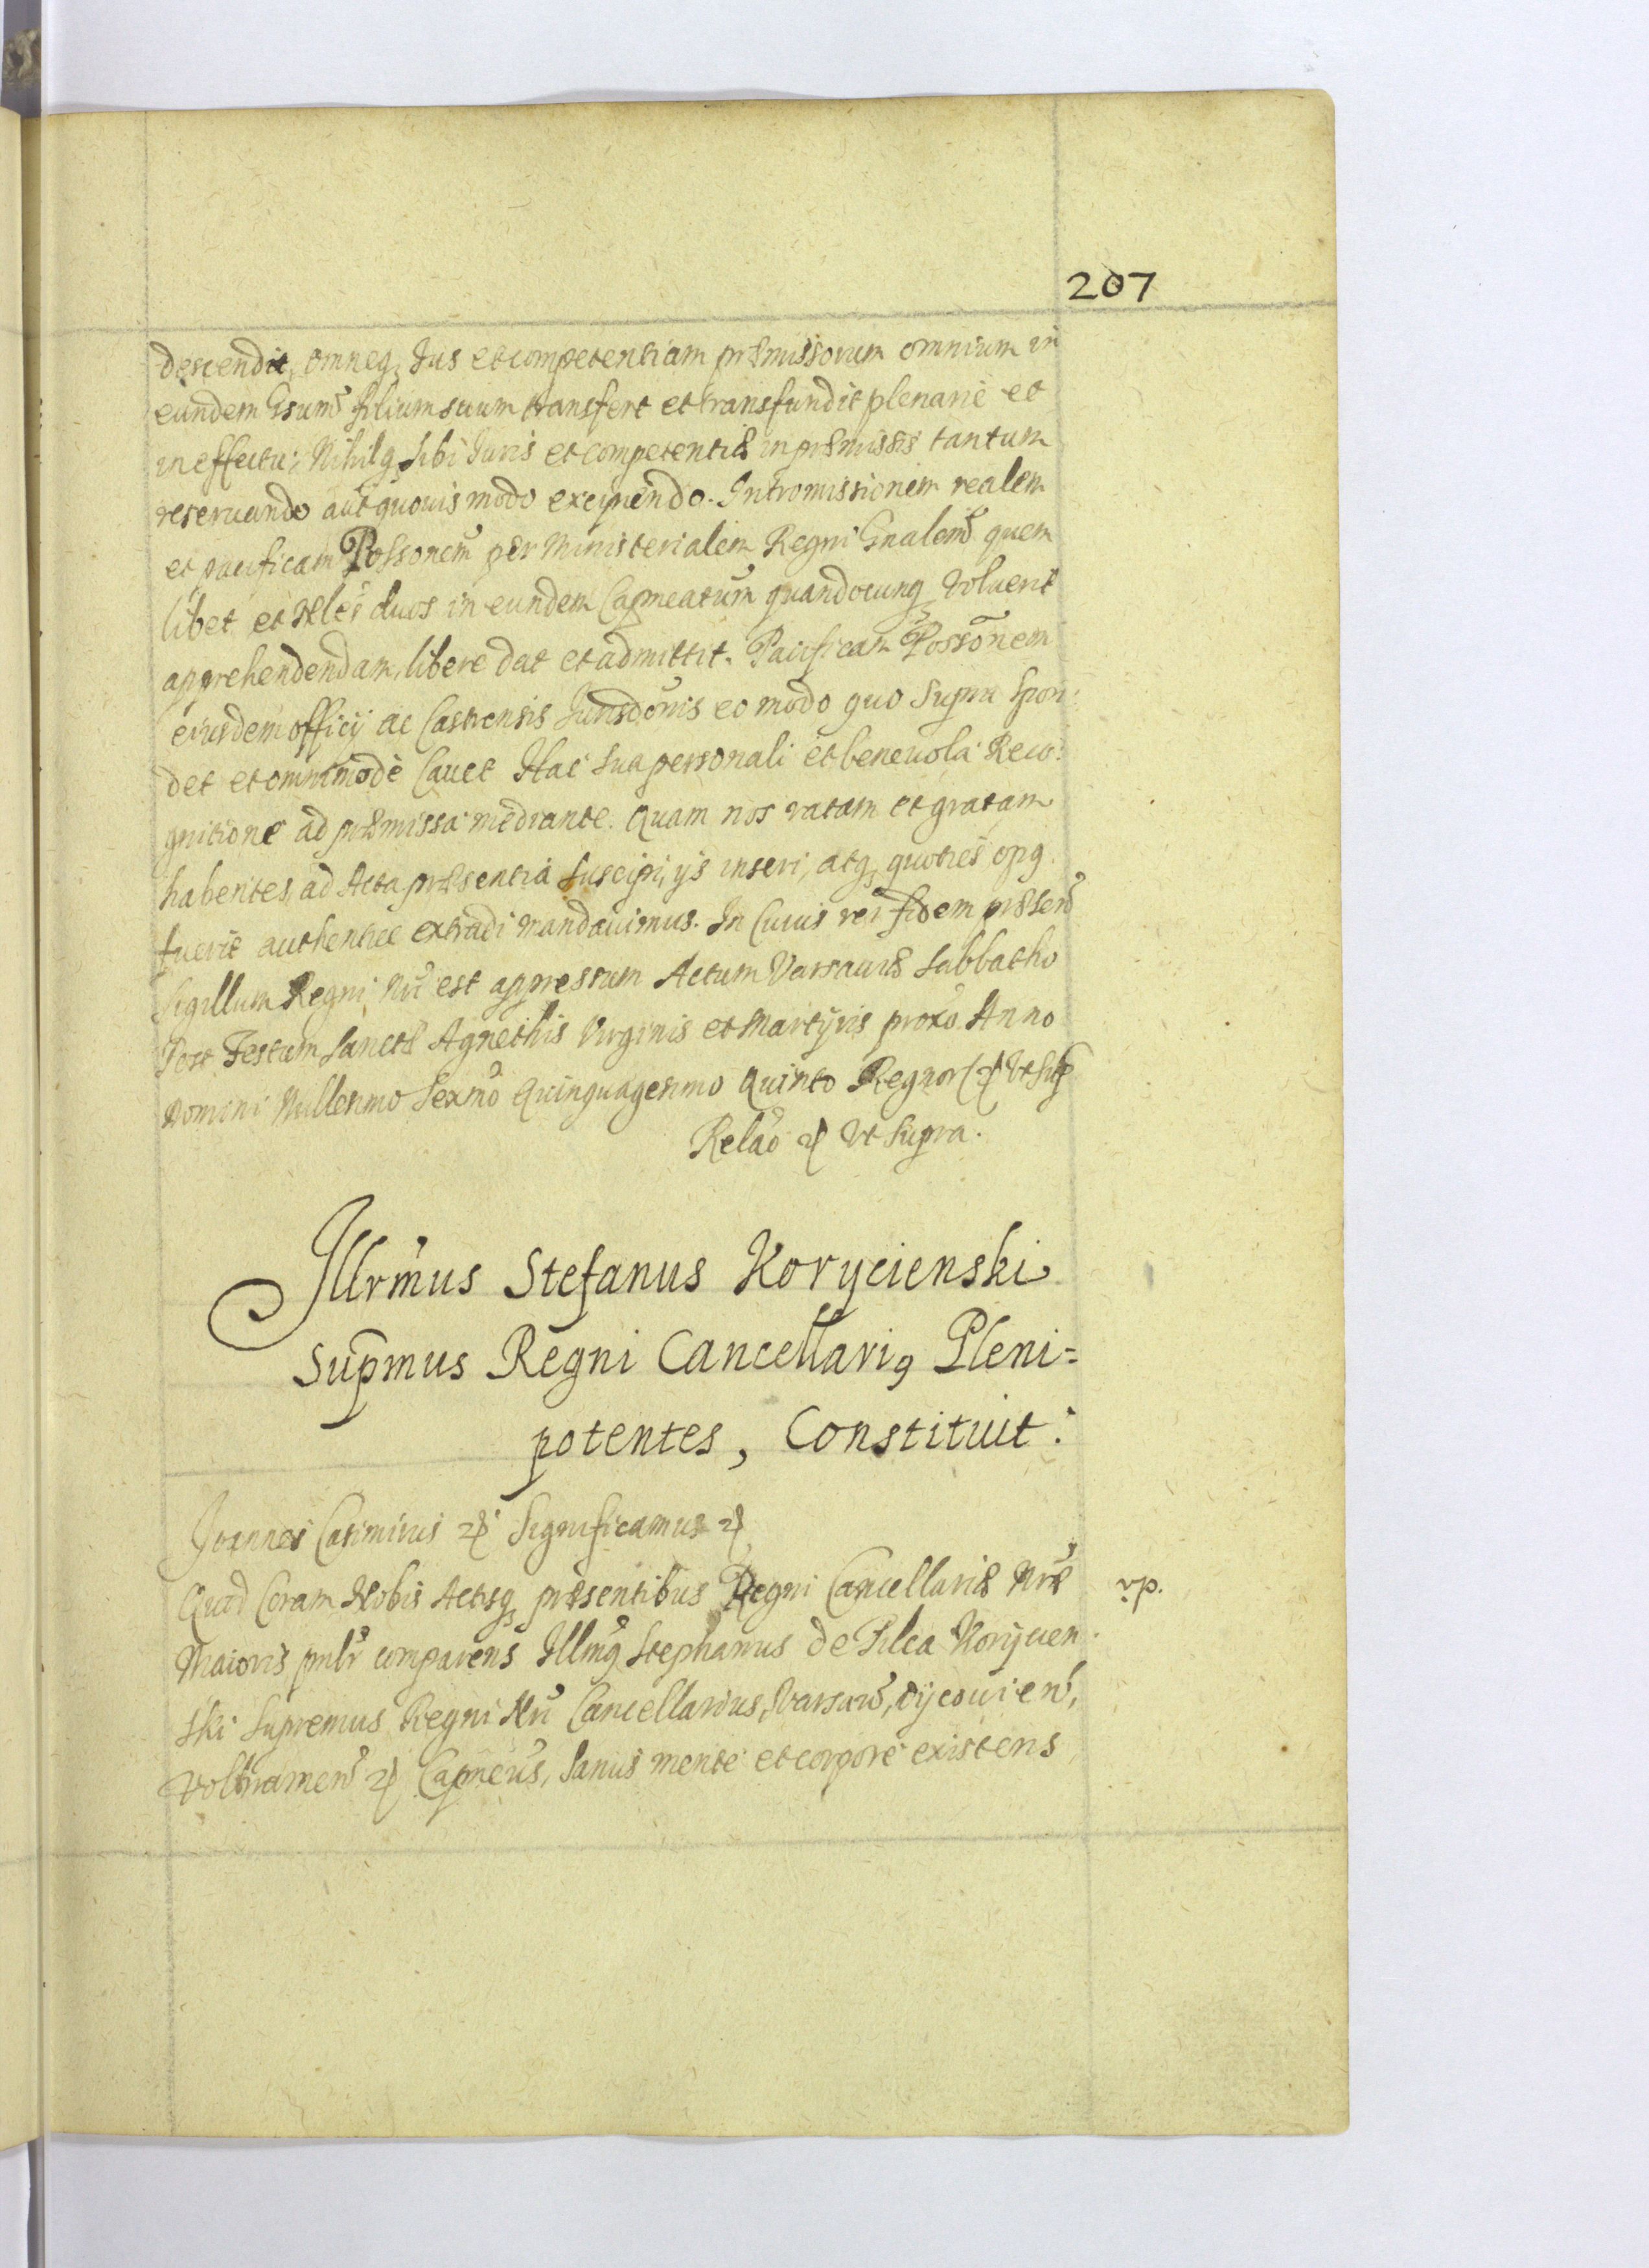 207
descendit, omneq₃ Jus et competentiam præmissorum omnium in
eundem Gsum̃ filium suum transfert et transfundit plenarie et
in effectu; Nihilq₃ sibi Juris et competentiæ in præmissis tantum
reseruando aut quouis modo excipiendo. Intromissionem realem
et pacificam Possonem̃ per Ministerialem Regni Gnalem̃ quem
libet et Nles̃ duos in eundem Capneatum̃ quandocunq₃ voluerit
apprehendendam, libere dat et admittit. Pacificam Possõnem
eiusdem officij ac Castrensis Jurisdõnis eo modo quo supra spon:
det et omnimodè Cauet Hac sua personali et beneuola Reco:
gnitione ad præmissa mediante. Quam nos ratam et gratam
habentes, ad Acta præsentia suscipi, ijs inseri, atq₃ quoties opq
fuerit authentice extradi mandauimus. In Cuius rei fidem præsen̄
Sigillum Regni Nrĩ est appressum Actum Varsauiæ Sabbatho
Post Festum Sanctæ Agnethis Virginis et Martijris proxõ Anno
Domini Millesimo Sexmõ Quinquagesimo Quinto Regnor ꝛc Vt Sup
Relaõ ꝛc Vt Supra.
Jllrm̃us Stefanus Korycienski
Supm̃us Regni Cancellariꝯ Pleni=
potentes, Constituit:
Joannes Casimirus ꝛc Significamus ꝛc
Quod Coram Nobis Actisq₃ præsentibus Regni Cancellariæ Nræ̃
rp.
Maioris pnlr̃ comparens Illmꝯ̃ Stephanus de Pilca Korijcien
ski Supremus Regni Nrĩ Cancellarius, Varsauien̄, Oijcouien̄,
Wolbramen̄ ꝛc Capneus̃, Sanus mente et corpore existens